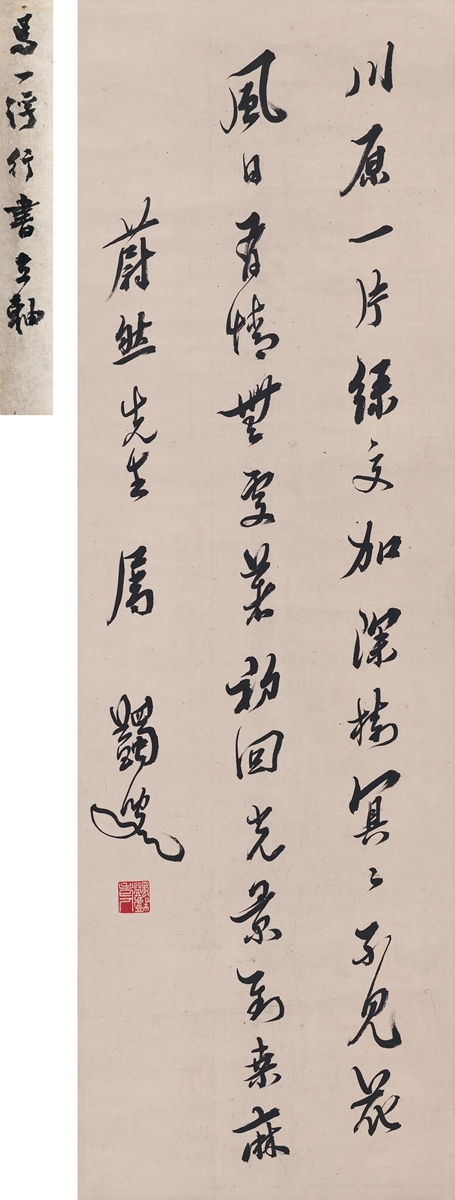 川原一片綠交加深樹冥〻不見花
風日有情無處著初回光景到桑麻
蔚然先生屬 蠲叟
馬一浮行書立軸